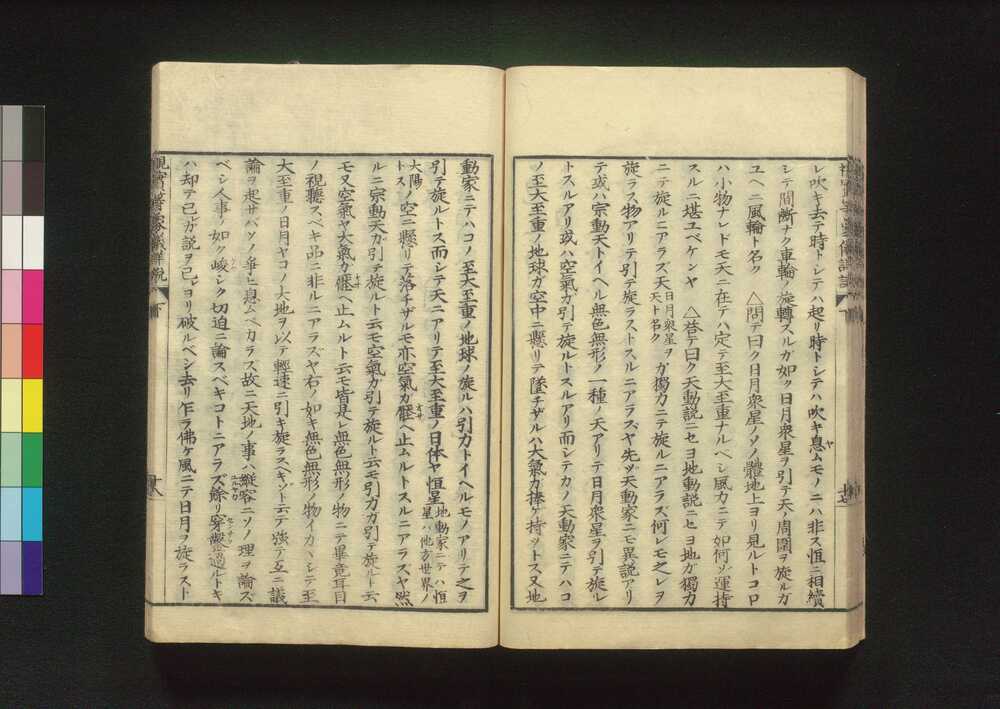 レ吹キ去テ時トシテハ起リ時トシテハ吹キ息ムモノニハ非ス恒ニ相續
シテ間斷ナク車輪ノ旋轉スルガ如ク日月衆星ヲ引テ天ノ周圍ヲ旋ルガ
ユヘニ風輪ト名ク △問テ曰ク日月衆星ノソノ體地上ヨリ見ルトコロ
ハ小物ナレドモ天ニ在テハ定テ至大至重ナルベシ風力ニテ如何ゾ運持
スルニ堪ユベケンヤ △答テ曰ク天動説ニセヨ地動説ニセヨ地ガ獨力
ニテ旋ルニアラズ天日月衆星ヲ天ト名クガ獨力ニテ旋ルニアラズ何レモ之レヲ
旋ラス物アリテ引テ旋ラストスルニアラズヤ先ヅ天動家ニモ異説アリ
テ或ハ宗動天トイヘル無色無形ノ一種ノ天アリテ日月衆星ヲ引テ旋ル
トスルアリ或ハ空氣ガ引テ旋ルトスルアリ而シテカノ天動家ニテハコ
ノ至大至重ノ地球ガ空中ニ懸リテ墜チザルハ大氣ガ捧ケ持ツトス又地
動家ニテハコノ至大至重ノ地球ノ旋ルハ引力トイヘルモノアリテ之ヲ
引テ旋ルトス而シテ天ニアリテ至大至重ノ日体ヤ恒星地動家ニテハ恒星ハ他方世界ノ
大陽トスノ空ニ懸リテ落チザルモ亦空氣ガ摧ヘ止ムルトスルニアラズヤ然
ルニ宗動天ガ引テ旋ルト云モ空氣ガ引テ旋ルト云モ引力ガ引テ旋ルト云
モ又空氣ヤ大氣ガ摧ヘ止ムルト云モ皆是レ無色無形ノ物ニテ畢竟耳目
ノ視聽スベキ品ニ非ルニアラズヤ右ノ如キ無色無形ノ物イカヾシテ至
大至重ノ日月ヤコノ大地ヲ以テ輕速ニ引キ旋ラスベキゾト云テ強テ互ニ議
論ヲ起サバソノ爭ヒ息ムベカラズ故ニ天地ノ事ハ縱容ニソノ理ヲ論ズ
ベシ人事ノ如ク峻シク切迫ニ論スベキコトニアラズ餘リ穿鑿過ルトキ
ハ却テ己レガ説ヲ己レヨリ破ルベシ去リ乍ラ佛ケ風ニテ日月ヲ旋ラスト